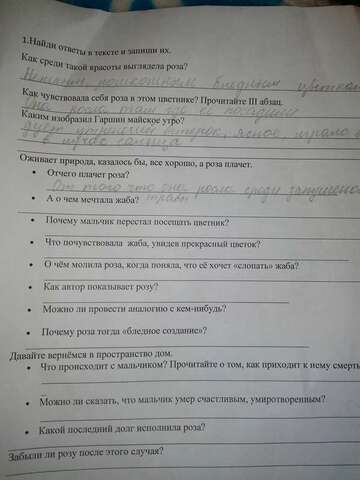 1.Найди ответы в тексте и запиши их.
Как среди такой красоты выглядела роза?
бледным цветком
Как чувствовала себя роза в этом цветнике? Прочитайте III абзац.
Она росла там где ее посадили
Каким изобразил Гаршин майское утро?
дует утренний ветерок, ясное,
в лучах солнца
Оживает природа, казалось бы, все хорошо, а роза плачет.
• Отчего плачет роза?
От того что она росла среди
• А о чем мечтала жаба? травы
• Почему мальчик перестал посещать цветник?
• Что почувствовала жаба, увидев прекрасный цветок?
• О чём молила роза, когда поняла, что её хочет «слопать» жаба?
• Как автор показывает розу?
• Можно ли провести аналогию с кем-нибудь?
• Почему роза тогда «бледное создание»?
Давайте вернёмся в пространство дом.
• Что происходит с мальчиком? Прочитайте о том, как приходит к нему смерть
• Можно ли сказать, что мальчик умер счастливым, умиротворенным?
• Какой последний долг исполнила роза?
Забыли ли розу после этого случая?